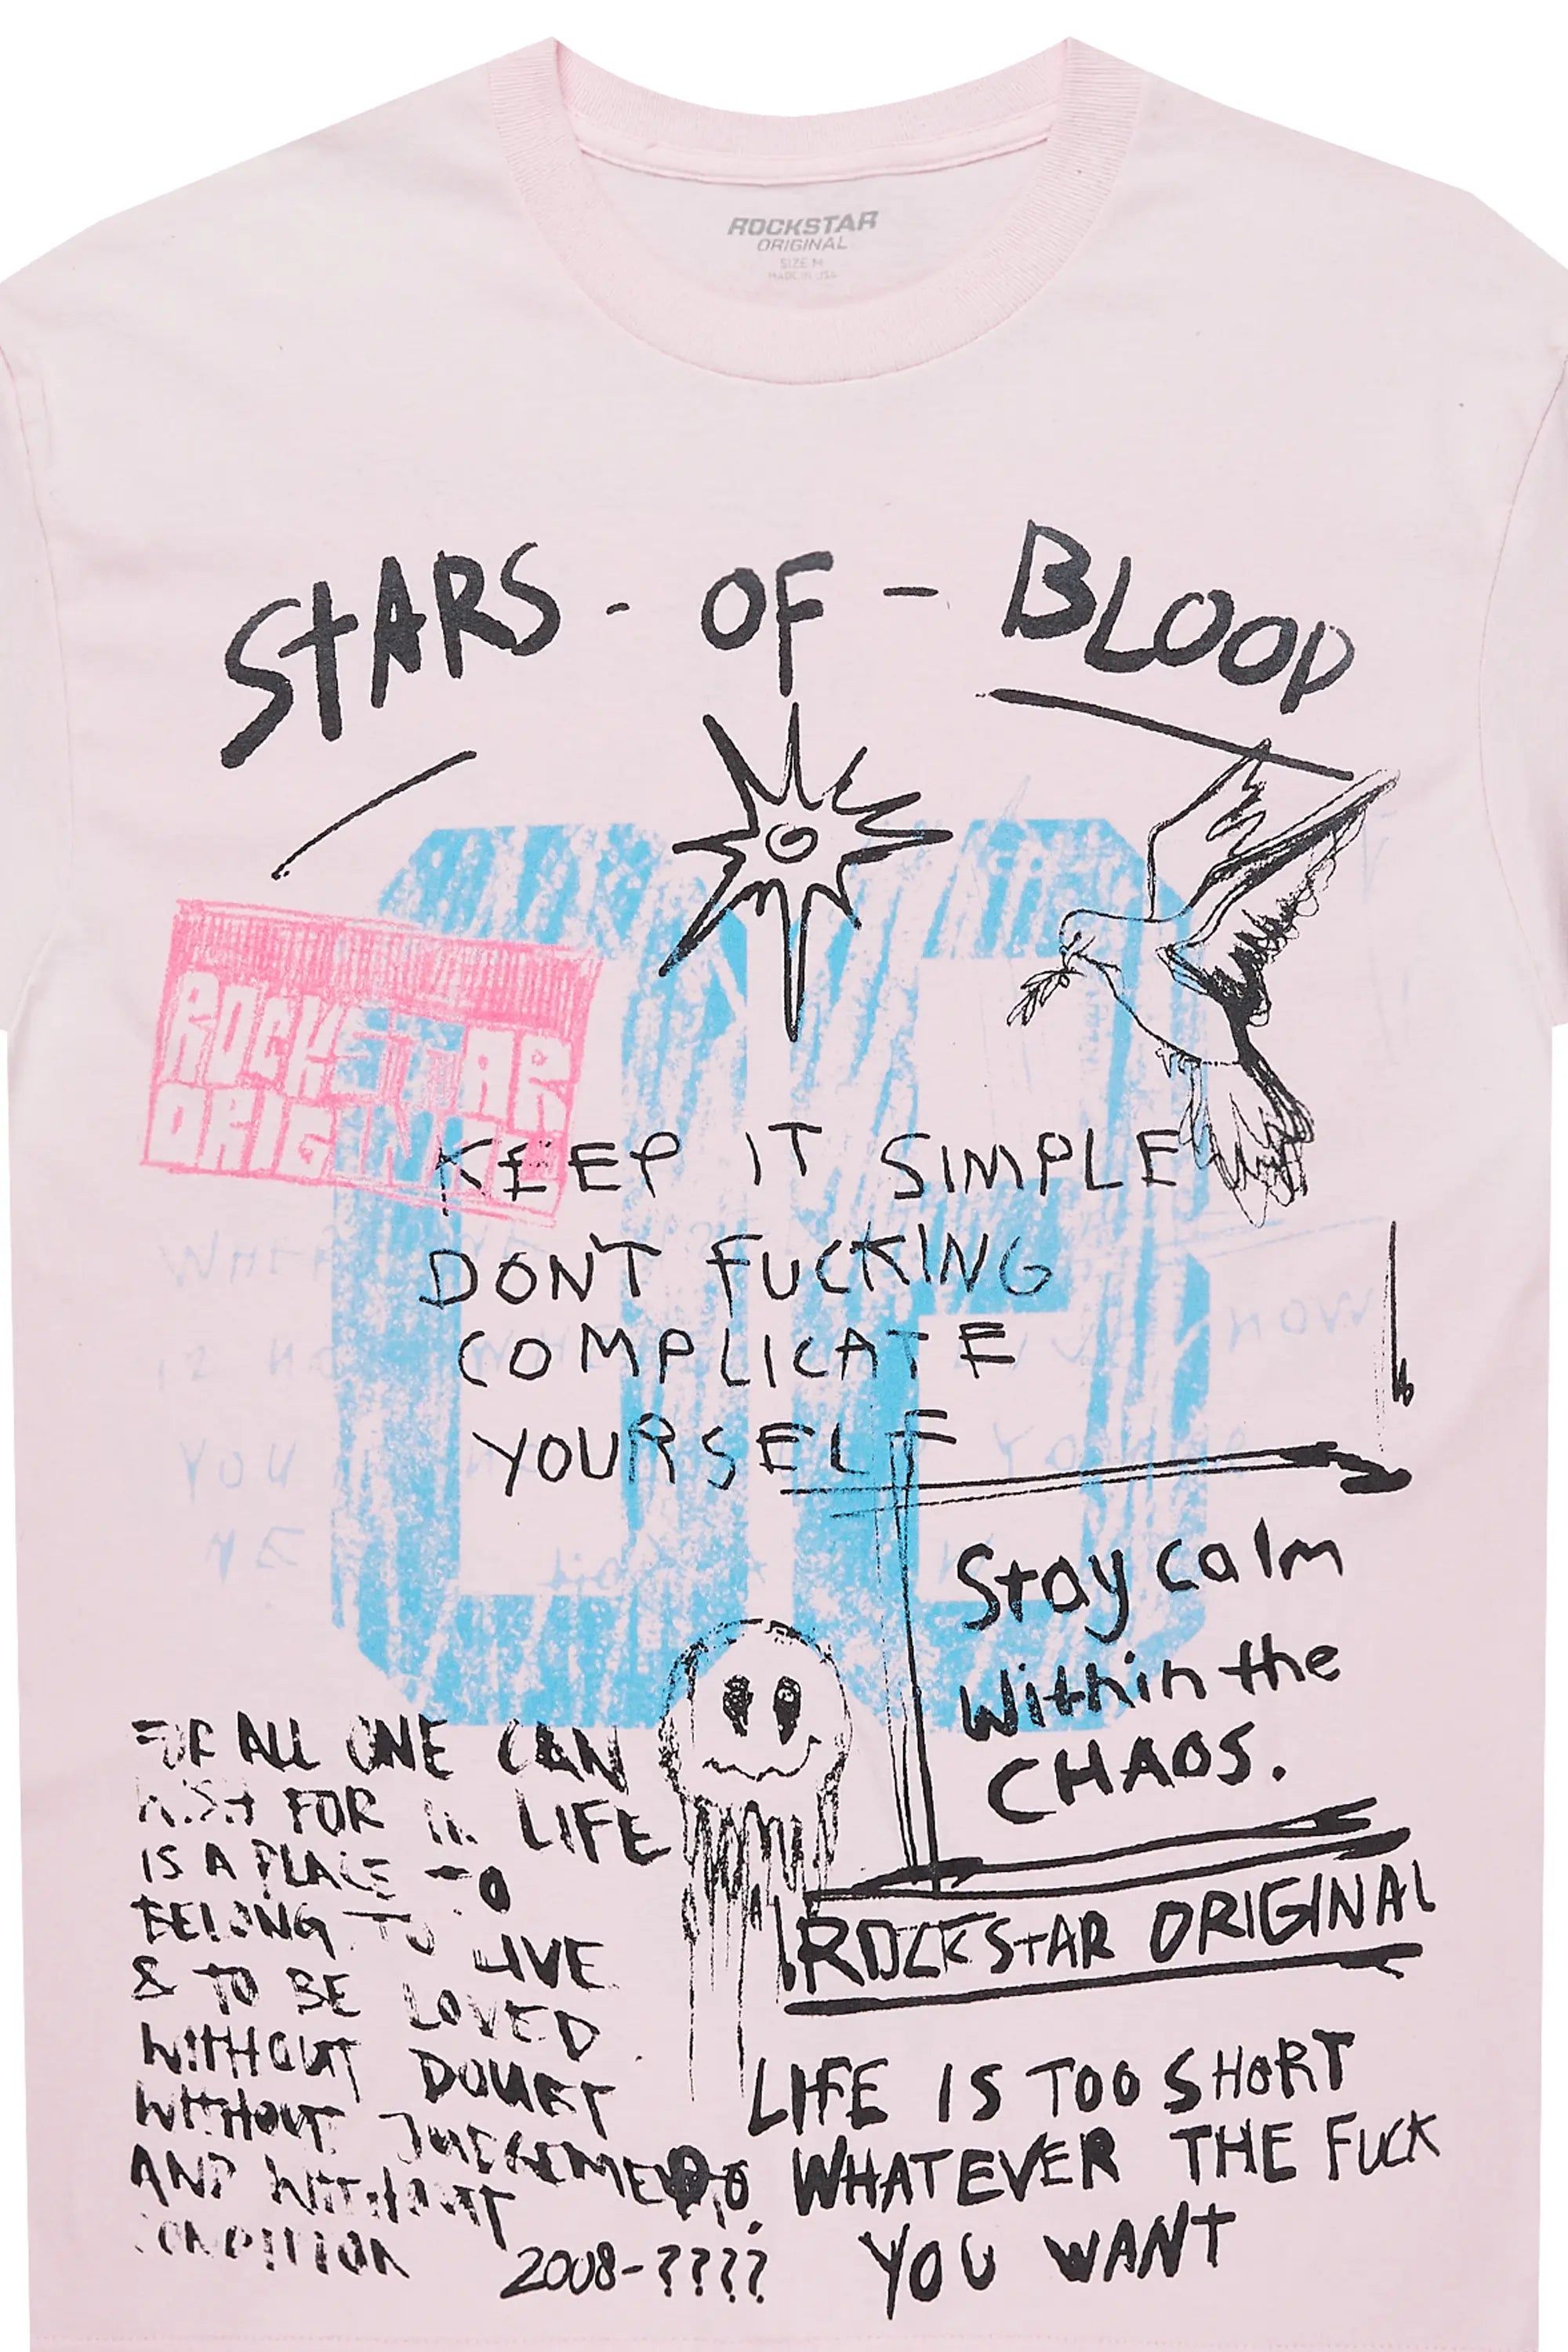 ROCKSTAR
ORIGINAL
SIZE M
MADE IN USA
STARS - OF - BLOOD
08
ROCKSTAR
ORIGINAL
KEEP IT SIMPLE
DON'T FUCKING
COMPLICATE
YOURSELF
Stay calm
Within the
CHAOS.
ROCKSTAR ORIGINAL
FOR ALL ONE CAN
WISH FOR IN LIFE
IS A PLACE TO
BELONG TO LIVE
& TO BE LOVED
WITHOUT DOUBT
WITHOUT JUDGEMENT
AND WITHOUT
CONDITION
2008-????
LIFE IS TOO SHORT
DO WHATEVER THE FUCK
YOU WANT